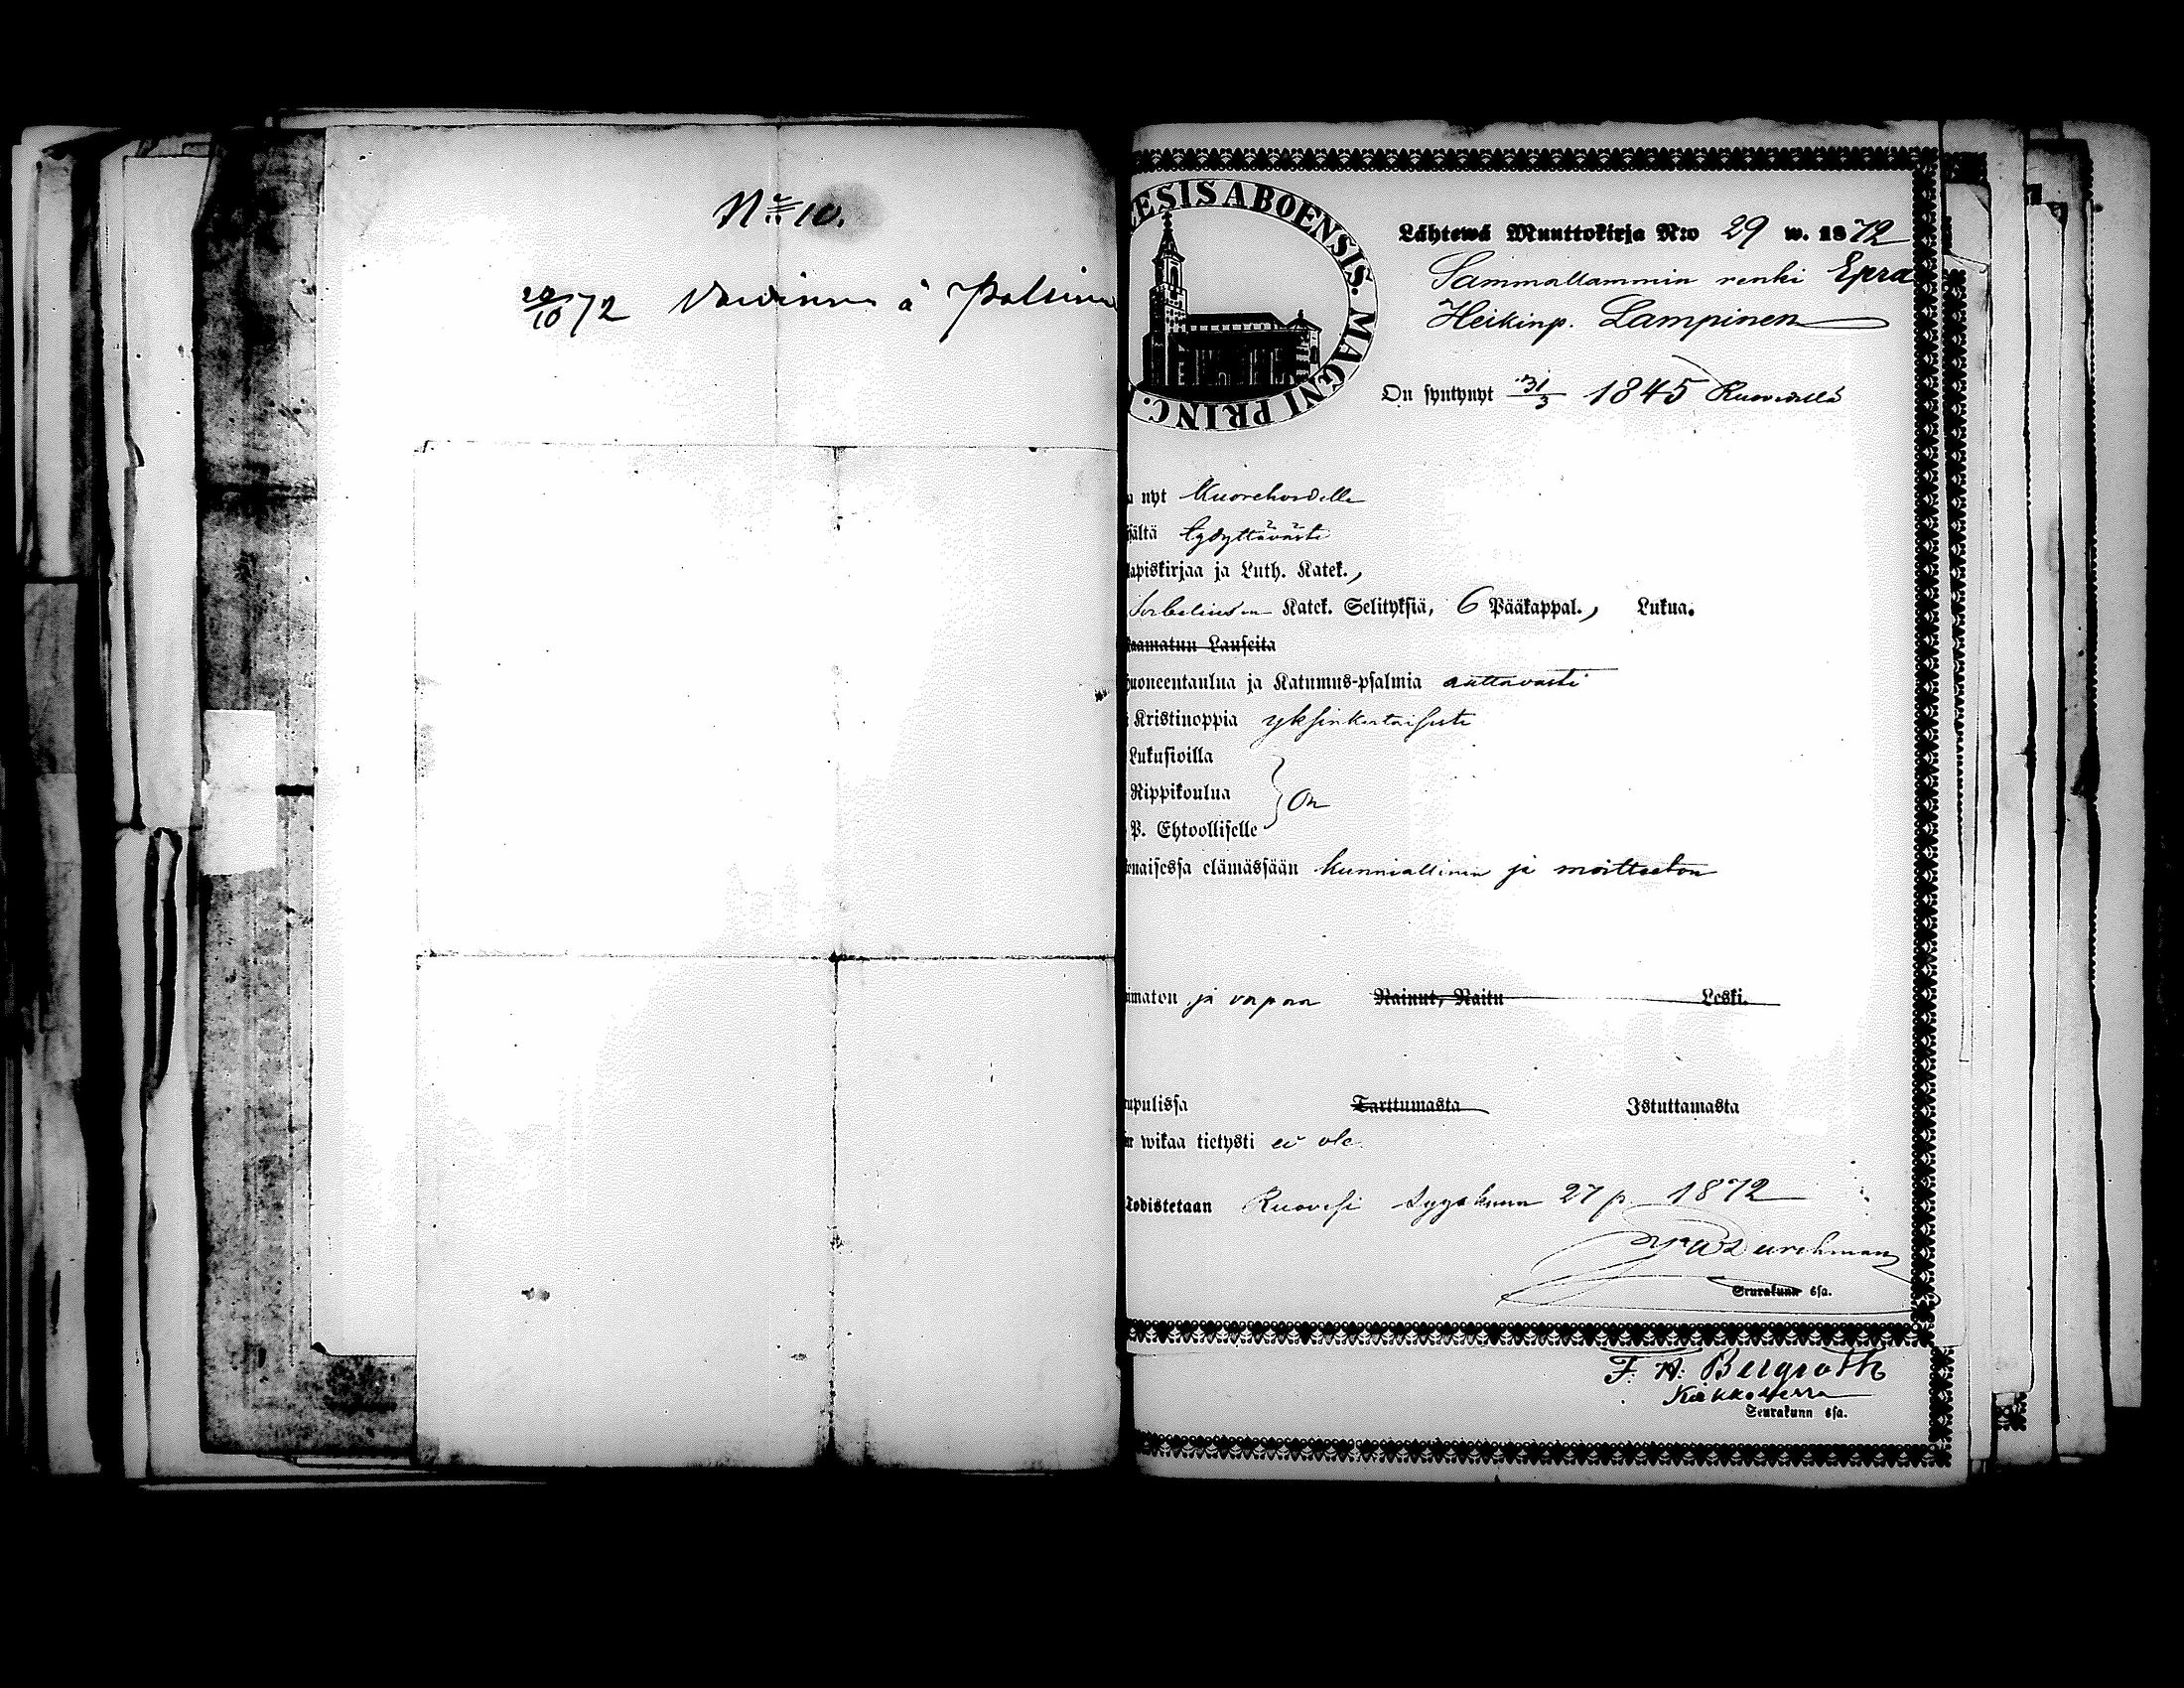 No 10.
29/10 72
ESIS ABOENSIS. MAGNI PRINC.
Lähtewä Muuttokirja N:o 29 w. 1872
Sammallammin renki Epra
Heikinp. Lampinen
On syntynyt 31/3 1845 Ruovedellä
nyt Kuorehvedelle
ältä tydyttävästi
apiskirjaa ja Luth. Katek.,
Katek. Selityksiä, 6 Pääkappal., Lukua.
aamatun Lauseita
uoneentaulua ja Katumus-psalmia auttavasti
Kristinoppia yksinkertaisesti
Lukusioilla
Rippikoulua
On
P. Ehtoolliselle
naisessa elämässään kunniallinen ja moitteeton
imaton ja vapaa Nainut, Naitu Leski.
upulissa Tarttumasta Istuttamasta
wikaa tietysti ei ole.
Todistetaan Ruovesi Syyskuun 27 p. 1872
Seurakunn esa.
F. A. Bergroth
Kirkkoherra
Seurakunn esa.